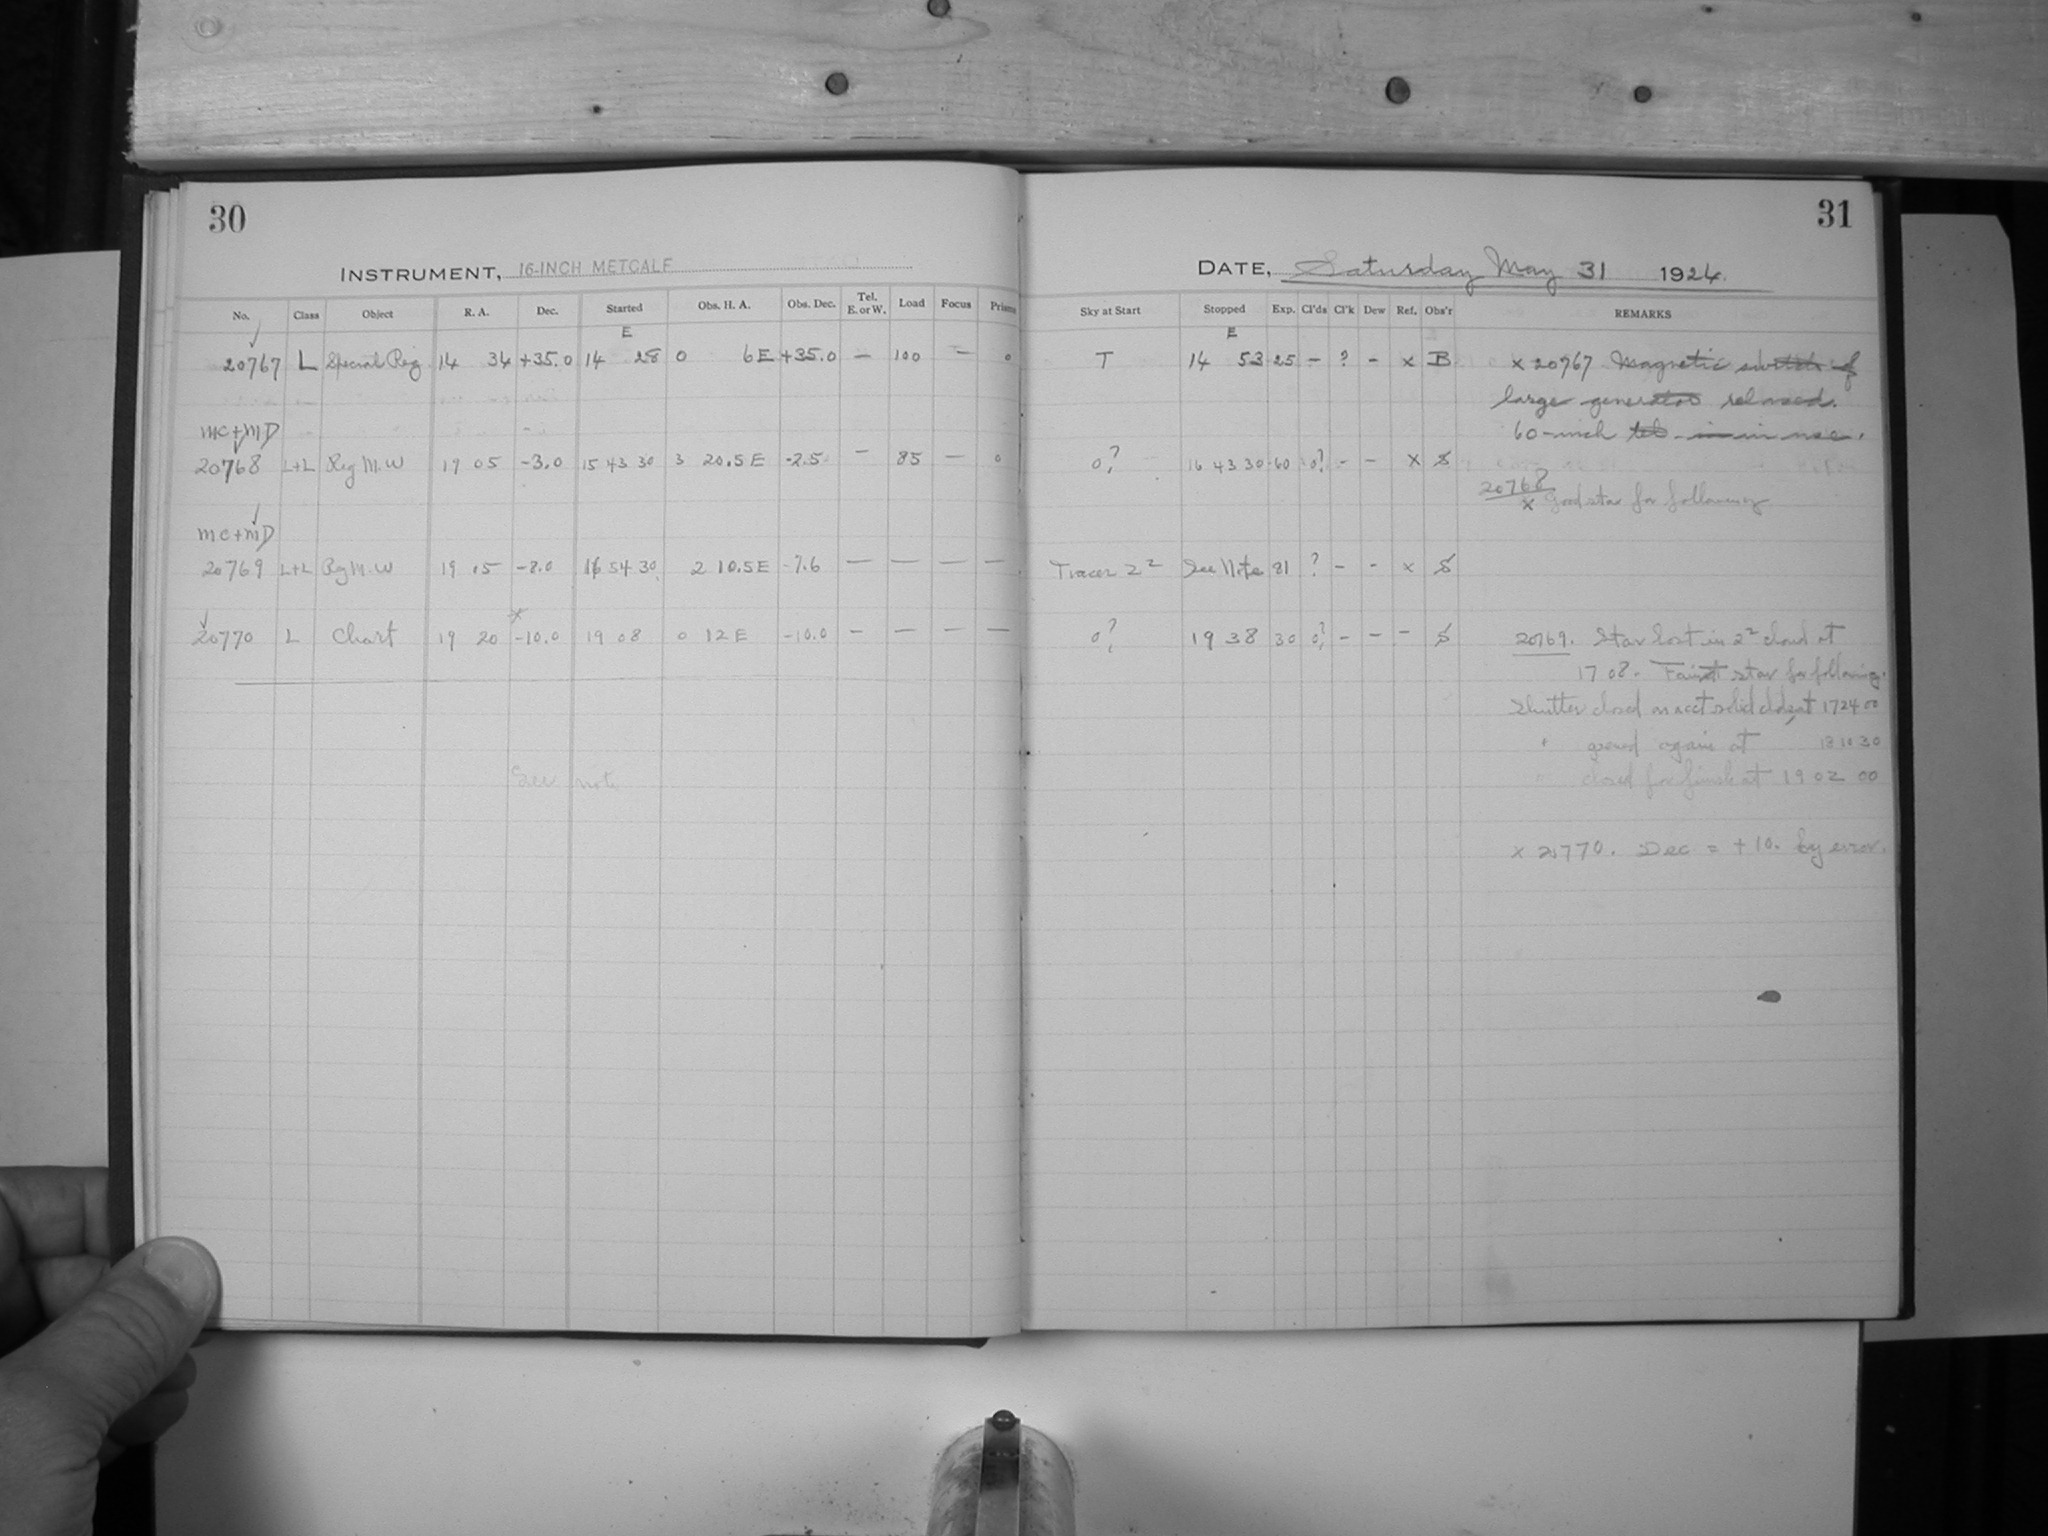 30
INSTRUMENT, 16-INCH METCALF
No. Class Object R. A. Dec. Started Obs. H. A. Obs. Dec. Tel. E. or W. Load Focus Prisms
E
20767 L Special Reg. 14 34 +35.0 14 28 0 6 E +35.0 — 100 — 0
MC+MD
20768 L+L Reg M.W 19 05 -3.0 15 43 30 3 20.5 E -2.5 — 85 — 0
MC+MD
20769 L+L Reg M.W 19 05 -8.0 16 54 30 2 10.5 E -7.6 — — — —
x
20770 L Chart 19 20 -10.0 19 08 0 12 E -10.0 — — — —
See note
31
DATE, Saturday May 31 1924.
Sky at Start Stopped Exp. Cl'ds Cl'k Dew Ref. Obs'r REMARKS
E
T 14 53 25 – ? – x B x 20767 Magnetic switch of
large generator released.
60-inch tel. in use.
0? 16 43 30 60 0? – – x S
20768
x Good star for following
Tracer 2² See Note 81 ? – – x S
0? 19 38 30 0? – – – S 20769. Star lost in 2² cloud at
17 08. Faint star for following.
Shutter closed on acct solid clds at 17 24 00
" opened again at 18 10 30
" closed for finish at 19 02 00
x 20770. Dec = +10. by error.